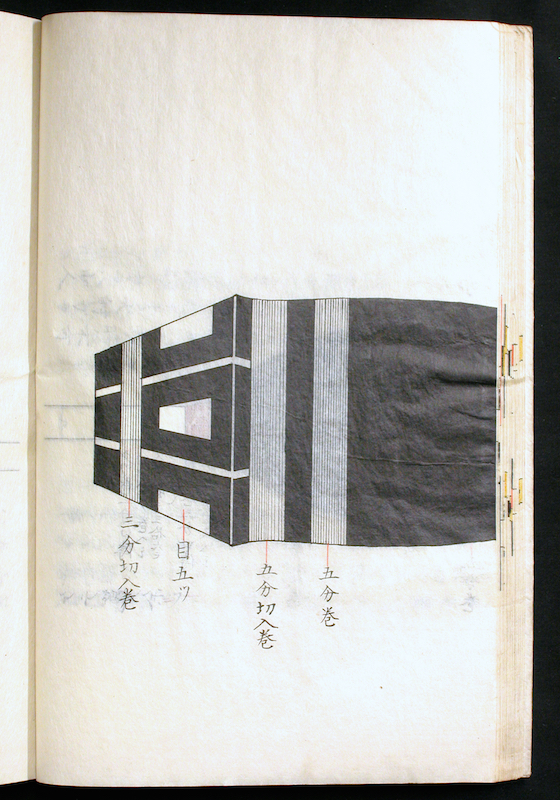 五分巻
五分切入巻
目五ツ
三分切入巻